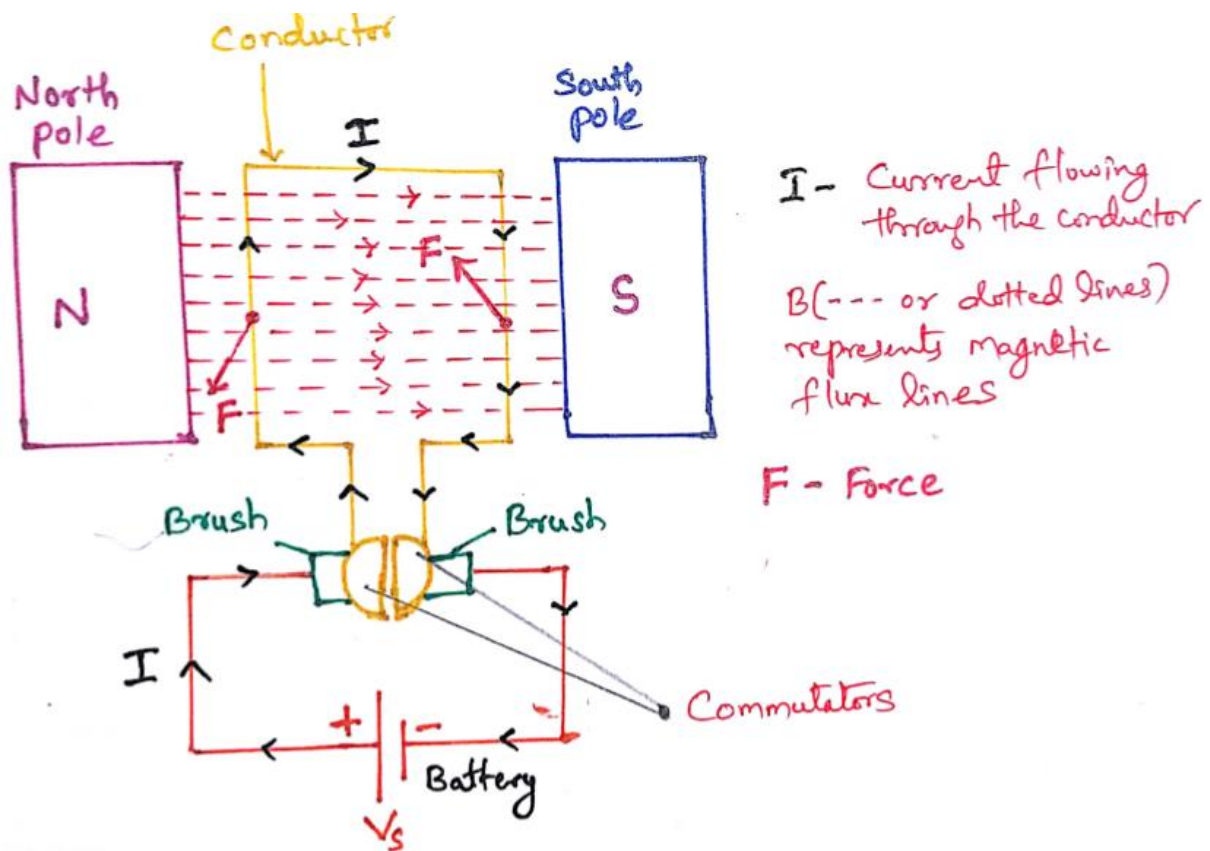 Conductor
North
pole
South
pole
I
N
S
F
F
I - Current flowing
through the conductor
B(--- or dotted lines)
represents magnetic
flux lines
F - Force
Brush
Brush
I
+
-
Battery
Vs
Commutators